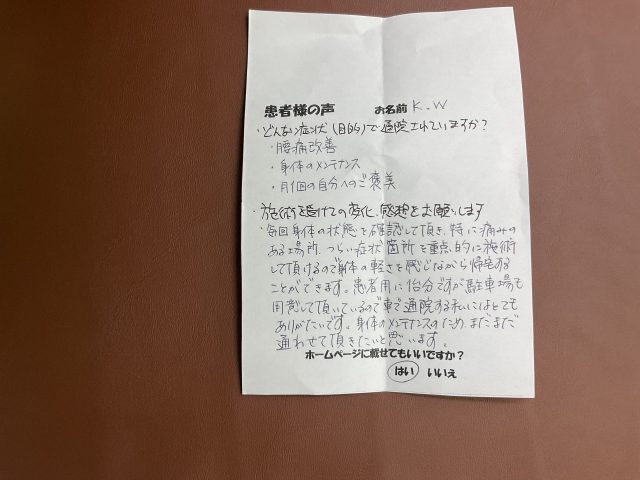 患者様の声 お名前 K.W
・どんな症状(目的)で通院されていますか?
・腰痛改善
・身体のメンテナンス
・月1回の自分へのご褒美
・施術を受けての変化、感想をお願いします
・毎回身体の状態を確認して頂き、特に痛みの
ある場所、つらい症状箇所を重点的に施術
して頂けるので身体の軽さを感じながら帰宅する
ことができます。患者用に1台分ですが駐車場も
用意して頂いているので車で通院する私にはとても
ありがたいです。身体のメンテナンスのため、まだまだ
通わせて頂きたいと思います。
ホームページに載せてもいいですか?
はい いいえ